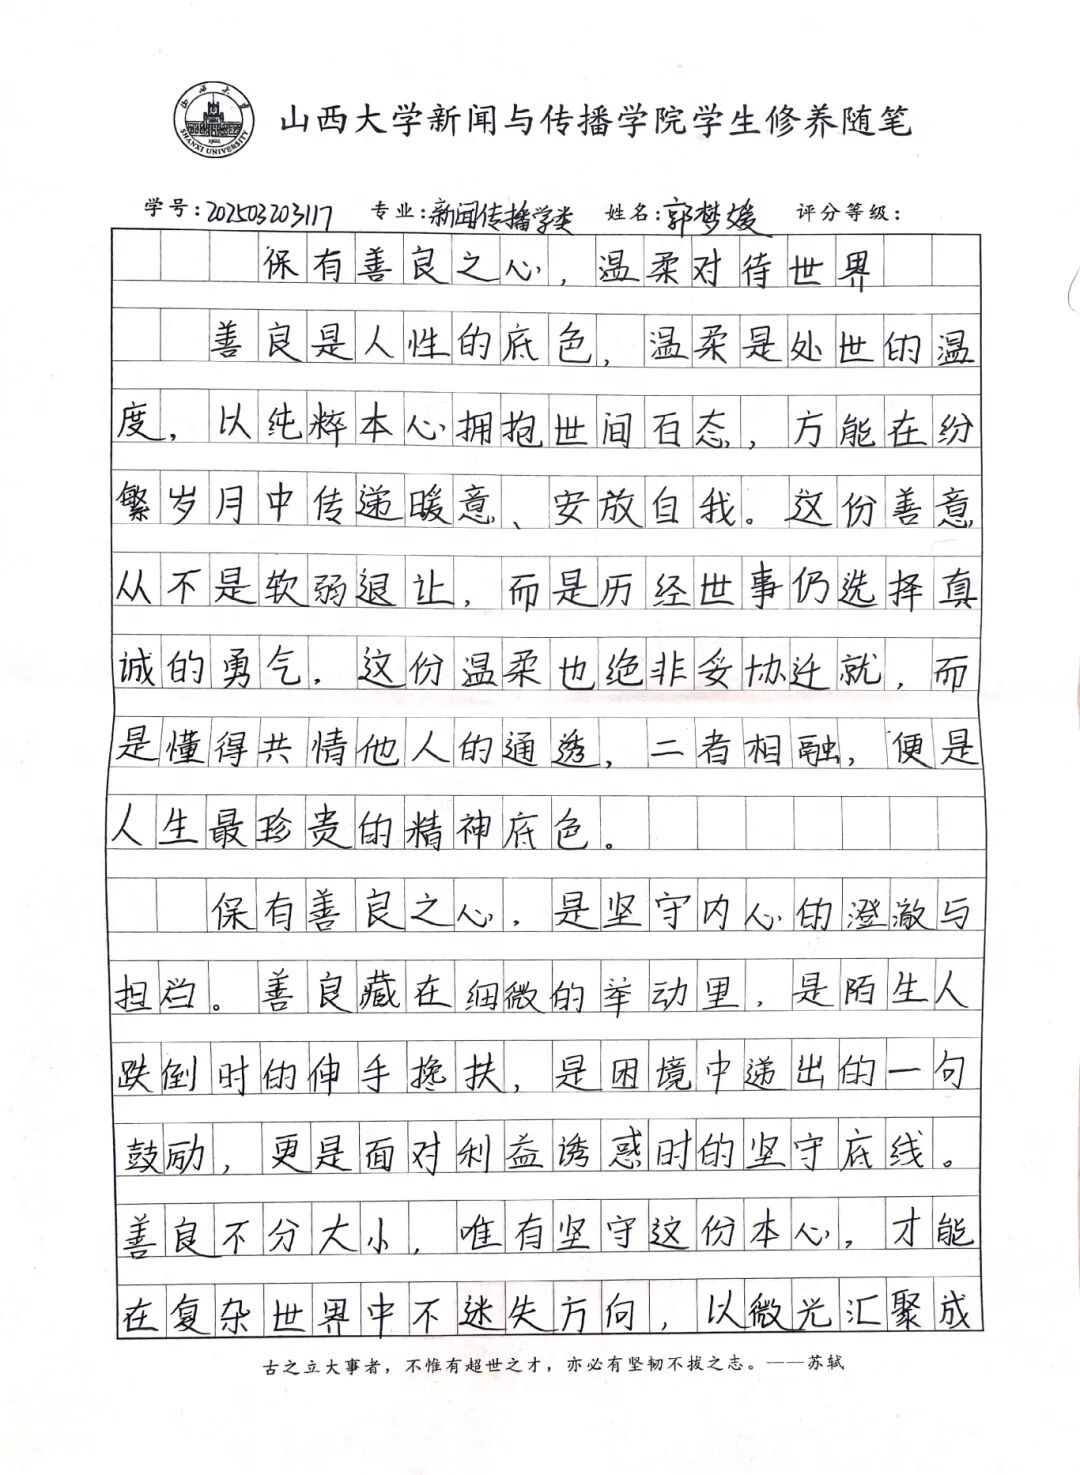 山西大学
SHANXI UNIVERSITY
1902
山西大学新闻与传播学院学生修养随笔
学号:202503203117 专业:新闻传播学类 姓名:郭梦媛 评分等级:
保有善良之心，温柔对待世界
善良是人性的底色，温柔是处世的温
度，以纯粹本心拥抱世间百态，方能在纷
繁岁月中传递暖意、安放自我。这份善意
从不是软弱退让，而是历经世事仍选择真
诚的勇气，这份温柔也绝非妥协迁就，而
是懂得共情他人的通透，二者相融，便是
人生最珍贵的精神底色。
保有善良之心，是坚守内心的澄澈与
担当。善良藏在细微的举动里，是陌生人
跌倒时的伸手搀扶，是困境中递出的一句
鼓励，更是面对利益诱惑时的坚守底线。
善良不分大小，唯有坚守这份本心，才能
在复杂世界中不迷失方向，以微光汇聚成
古之立大事者，不惟有超世之才，亦必有坚韧不拔之志。——苏轼